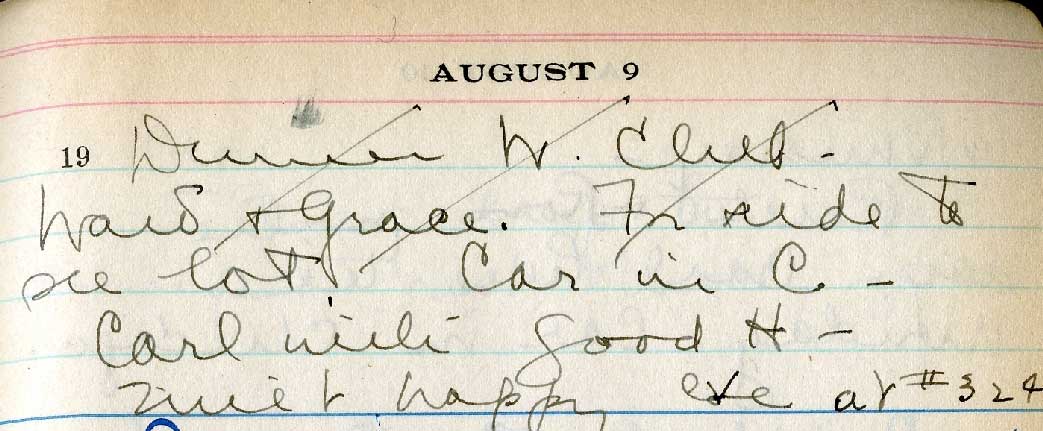 AUGUST 9
19 Dinner W. Club -
Ward & Grace. Fr ride to
see lot. Car in C. -
Carl good H -
Quiet happy eve at #324